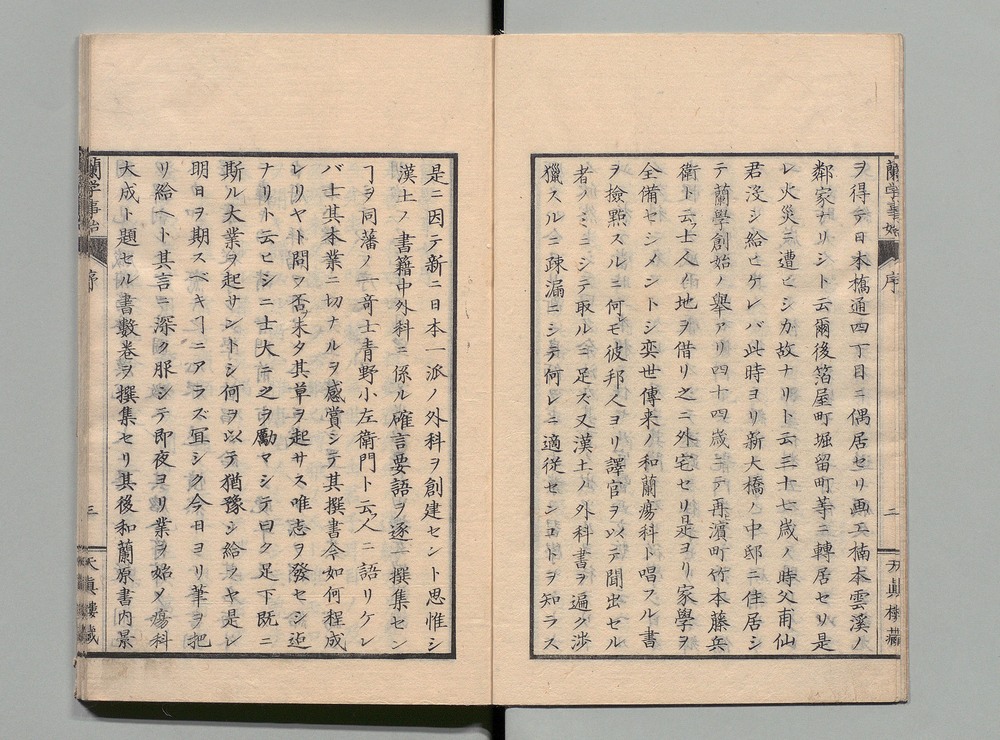 蘭学事始 序 二 天真楼蔵
ヲ得テ日本橋通四丁目ニ偶居セリ画工楠本雲溪ノ
鄰家ナリシト云爾後箔屋町堀留町等ニ轉居セリ是
レ火災ニ遭ヒシカ故ナリト云三十七歳ノ時父甫仙
君没シ給ヒケレバ此時ヨリ新大橋ノ中邸ニ住居シ
テ蘭學創始ノ舉アリ四十四歳ニテ再濱町竹本藤兵
衛ト云ツ士人ノ地ヲ借リ之ニ外宅セリ是ヨリ家學ヲ
全備セシメントシ奕世傳来ノ和蘭瘍科ト唱フル書
ヲ撿點スルニ何モ彼邦人ヨリ譯官ヲ以テ聞出セル
者ノミニシテ取ルニ足ズ又漢土ノ外科書ヲ遍ク渉
獵スルニ疎漏ニシテ何レニ適従センコトヲ知ラス
是ニ因テ新ニ日本一派ノ外科ヲ創建セント思惟シ
漢土ノ書籍中外科ニ係ル確言要語ヲ逐ニ撰集セン
ヿヲ同藩ノ一奇士青野小左衛門ト云ツ人ニ語リケレ
バ士其本業ニ切ナルヲ感賞シテ其撰書今如何程成
レリヤト問フ否未タ其草ヲ起サス唯志ヲ發セシ迠
ナリト云ヒシニ士大ニ之ヲ勵マシテ曰ク足下既ニ
斯ル大業ヲ起サントシ何ヲ以テ猶豫シ給フヤ是レ
明日ヲ期スベキヿニアラズ冝シク今日ヨリ筆ヲ把
リ給ヘト其言ニ深ク服シテ即夜ヨリ業ヲ始メ瘍科
大成ト題セル書數巻ヲ撰集セリ其後和蘭原書内景
蘭学事始 序 三 天真樓蔵